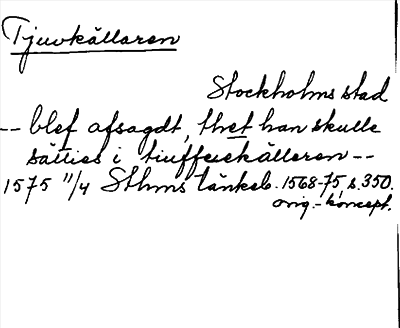 Tjuvkällaren
Stockholms stad
-- blef afsagdt, thet han skulle
sätties i tiuffuekälleren --
1575 11/4 Sthms tänkeb. 1568-75, s. 350.
orig.-koncept.